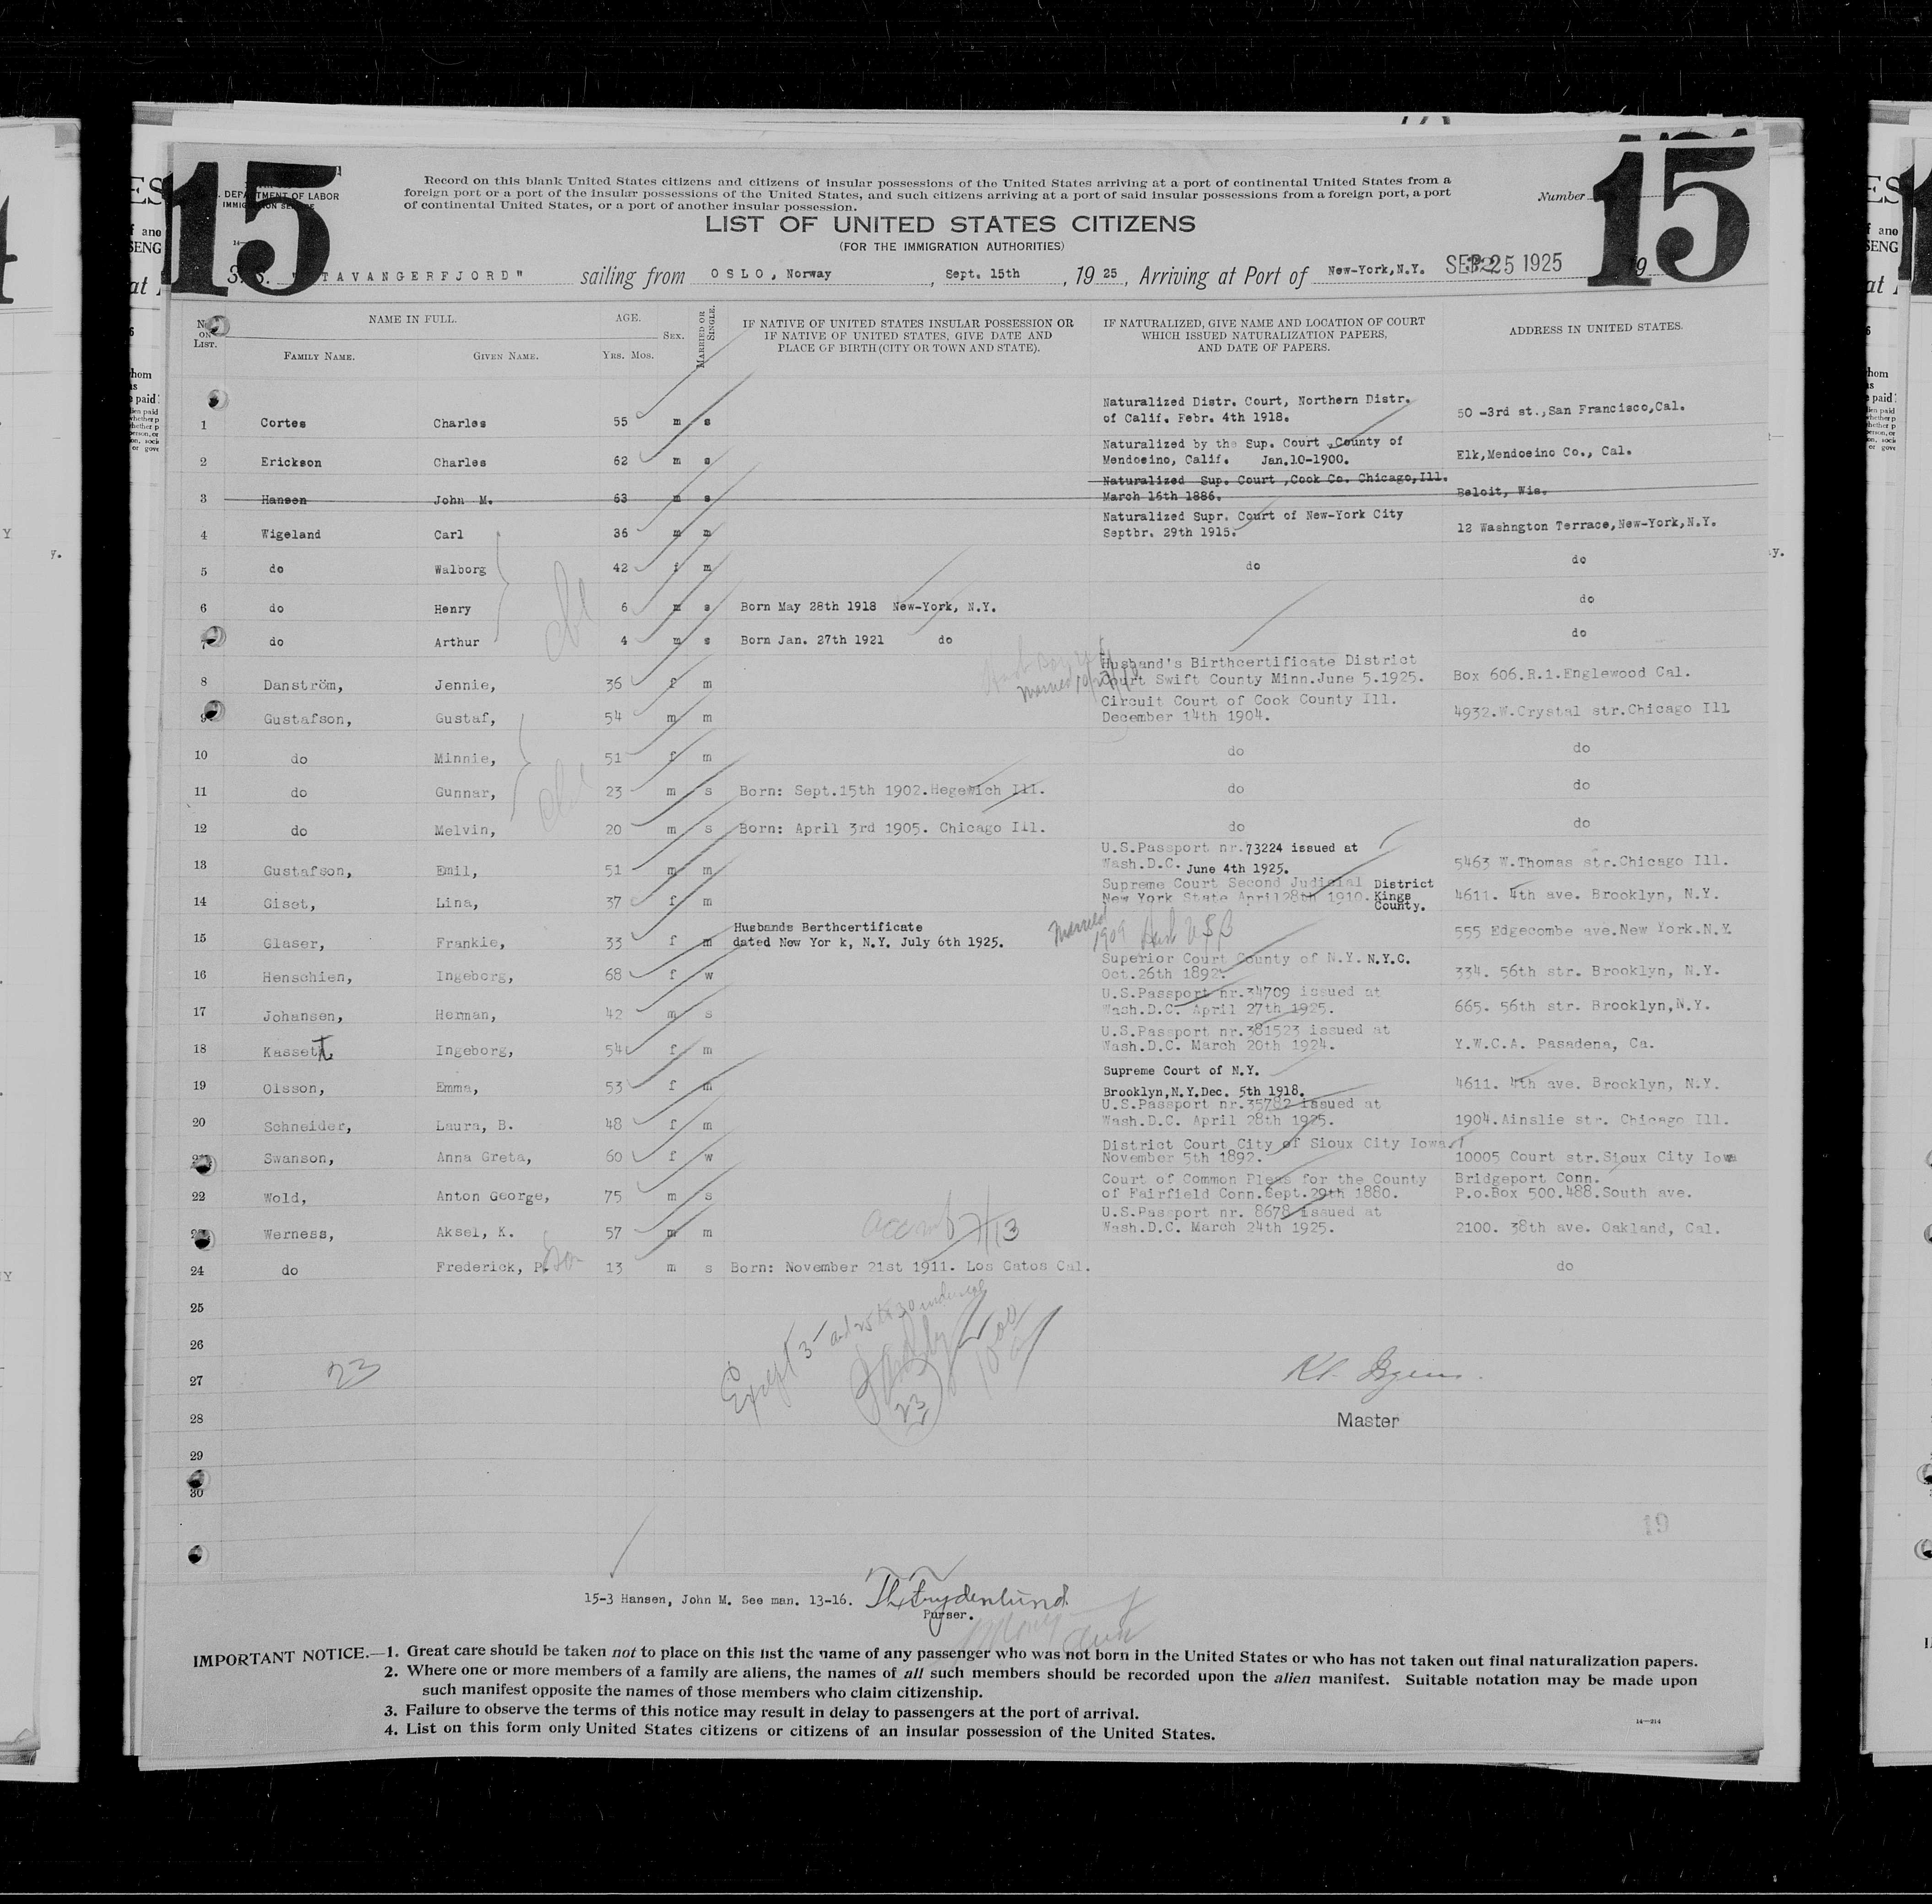 15
15
DEPARTMENT OF LABOR
Record on this blank United States citizens and citizens of insular possessions of the United States arriving at a port of continental United States from a
foreign port or a port of the insular possessions of the United States, and such citizens arriving at a port of said insular possessions from a foreign port, a port
of continental United States, or a port of another insular possession.
Number
LIST OF UNITED STATES CITIZENS
(FOR THE IMMIGRATION AUTHORITIES)
TAVANGERFJORD" sailing from OSLO, Norway, Sept. 15th, 1925, Arriving at Port of New-York, N.Y. SEP 25 1925
No. ON LIST. NAME IN FULL. AGE. SEX. MARRIED OR SINGLE. IF NATIVE OF UNITED STATES INSULAR POSSESSION OR IF NATIVE OF UNITED STATES, GIVE DATE AND PLACE OF BIRTH (CITY OR TOWN AND STATE). IF NATURALIZED, GIVE NAME AND LOCATION OF COURT WHICH ISSUED NATURALIZATION PAPERS, AND DATE OF PAPERS. ADDRESS IN UNITED STATES.
FAMILY NAME. GIVEN NAME. YRS. MOS.
1 Cortes Charles 55 m s Naturalized Distr. Court, Northern Distr. of Calif. Febr. 4th 1918. 50 -3rd st.,San Francisco,Cal.
2 Erickson Charles 62 m s Naturalized by the Sup. Court ,County of Mendosino, Calif. Jan.10-1900. Elk,Mendosino Co., Cal.
3 Hansen John M. 63 m s Naturalized Sup. Court ,Cook Co. Chicago,Ill. March 16th 1886. Beloit, Wis.
4 Wigeland Carl 36 m m Naturalized Supr. Court of New-York City Septbr. 29th 1915. 12 Washngton Terrace,New-York,N.Y.
5 do Walborg 42 f m do do
6 do Henry 6 m s Born May 28th 1918 New-York, N.Y. do
7 do Arthur 4 m s Born Jan. 27th 1921 do do
8 Danström, Jennie, 36 f m Husband's Birthcertificate District Court Swift County Minn.June 5.1925. Box 606.R.1.Englewood Cal.
9 Gustafson, Gustaf, 54 m m Circuit Court of Cook County Ill. December 14th 1904. 4932.W.Crystal str.Chicago Ill
10 do Minnie, 51 f m do do
11 do Gunnar, 23 m s Born: Sept.15th 1902.Hegewich Ill. do do
12 do Melvin, 20 m s Born: April 3rd 1905. Chicago Ill. do do
13 Gustafson, Emil, 51 m m U.S.Passport nr.73224 issued at Wash.D.C. June 4th 1925. 5463 W.Thomas str.Chicago Ill.
14 Giset, Lina, 37 f m Supreme Court Second Judicial District New York State April 28th 1910. Kings County. 4611. 4th ave. Brooklyn, N.Y.
15 Glaser, Frankie, 33 f m Husbands Berthcertificate dated New Yor k, N.Y. July 6th 1925. Married 1909 555 Edgecombe ave.New York.N.Y.
16 Henschien, Ingeborg, 68 f w Superior Court County of N.Y. N.Y.C. Oct.26th 1892. 334. 56th str. Brooklyn, N.Y.
17 Johansen, Herman, 42 m s U.S.Passport nr.34709 issued at Wash.D.C. April 27th 1925. 665. 56th str. Brooklyn,N.Y.
18 Kassett, Ingeborg, 54 f m U.S.Passport nr.381523 issued at Wash.D.C. March 20th 1924. Y.W.C.A. Pasadena, Ca.
19 Olsson, Emma, 53 f m Supreme Court of N.Y. Brooklyn,N.Y.Dec. 5th 1918. 4611. 4th ave. Brooklyn, N.Y.
20 Schneider, Laura, B. 48 f m U.S.Passport nr.35782 issued at Wash.D.C. April 28th 1925. 1904.Ainslie str. Chicago Ill.
21 Swanson, Anna Greta, 60 f w District Court City of Sioux City Iowa. November 5th 1892. 10005 Court str.Sioux City Iowa
22 Wold, Anton George, 75 m s Court of Common Pleas for the County of Fairfield Conn.Sept.29th 1880. Bridgeport Conn. P.o.Box 500.488.South ave.
23 Werness, Aksel, K. 57 m m U.S.Passport nr. 8678 issued at Wash.D.C. March 24th 1925. 2100. 38th ave. Oakland, Cal.
24 do Frederick, P. son 13 m s Born: November 21st 1911. Los Gatos Cal. do
25
26
27 23
28 Master
29
30
Except 3 and 25 to 30
23
19
15-3 Hansen, John M. See man. 13-16.
Purser.
IMPORTANT NOTICE.—1. Great care should be taken not to place on this list the name of any passenger who was not born in the United States or who has not taken out final naturalization papers.
2. Where one or more members of a family are aliens, the names of all such members should be recorded upon the alien manifest. Suitable notation may be made upon
such manifest opposite the names of those members who claim citizenship.
3. Failure to observe the terms of this notice may result in delay to passengers at the port of arrival.
4. List on this form only United States citizens or citizens of an insular possession of the United States.
14—214